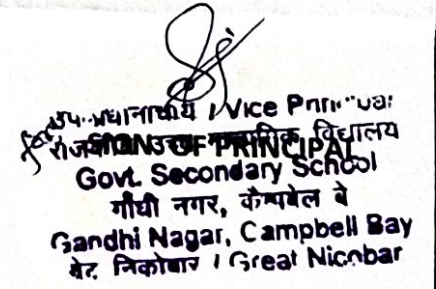 for उप-प्रधानाचार्य / Vice Principal
SIGN OF PRINCIPAL
विद्यालय
Govt. Secondary School
गाँधी नगर, कैम्पबेल बे
Gandhi Nagar, Campbell Bay
ग्रेट निकोबार / Great Nicobar